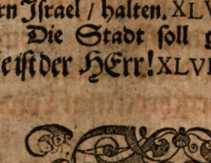 rn Israel / halten. XLV
Die Stadt soll g
e ist der HErr! XLVI